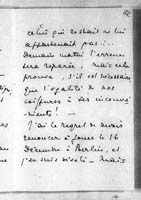 celui qui restait ne lui
appartenait pas !...
Demain matin l'erreur
sera réparée, mais cela
prouve, s'il est nécessaire
que l'égalité de nos
coiffures a ses inconvé-
nients ! —
J'ai le regret de devoir
renoncer à jouer le 16
Décembre à Berlin, et
j'en suis désolé — mais